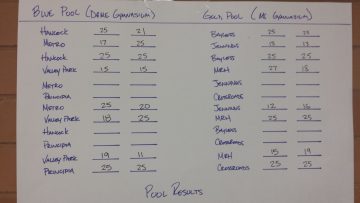 Blue Pool (Dome Gymnasium)
Hancock 25 21
Metro 17 25
Hancock 25 25
Valley Park 15 15
Metro
Principia
Metro 25 20
Valley Park 18 25
Hancock
Principia
Valley Park 19 11
Principia 25 25
Gold Pool (MC Gymnasium)
Bayless 25 25
Jennings 13 13
Bayless 25 25
MRH 27 13
Jennings
Crossroads
Jennings 12 16
MRH 25 25
Bayless
Crossroads
MRH 15 19
Crossroads 25 25
Pool Results